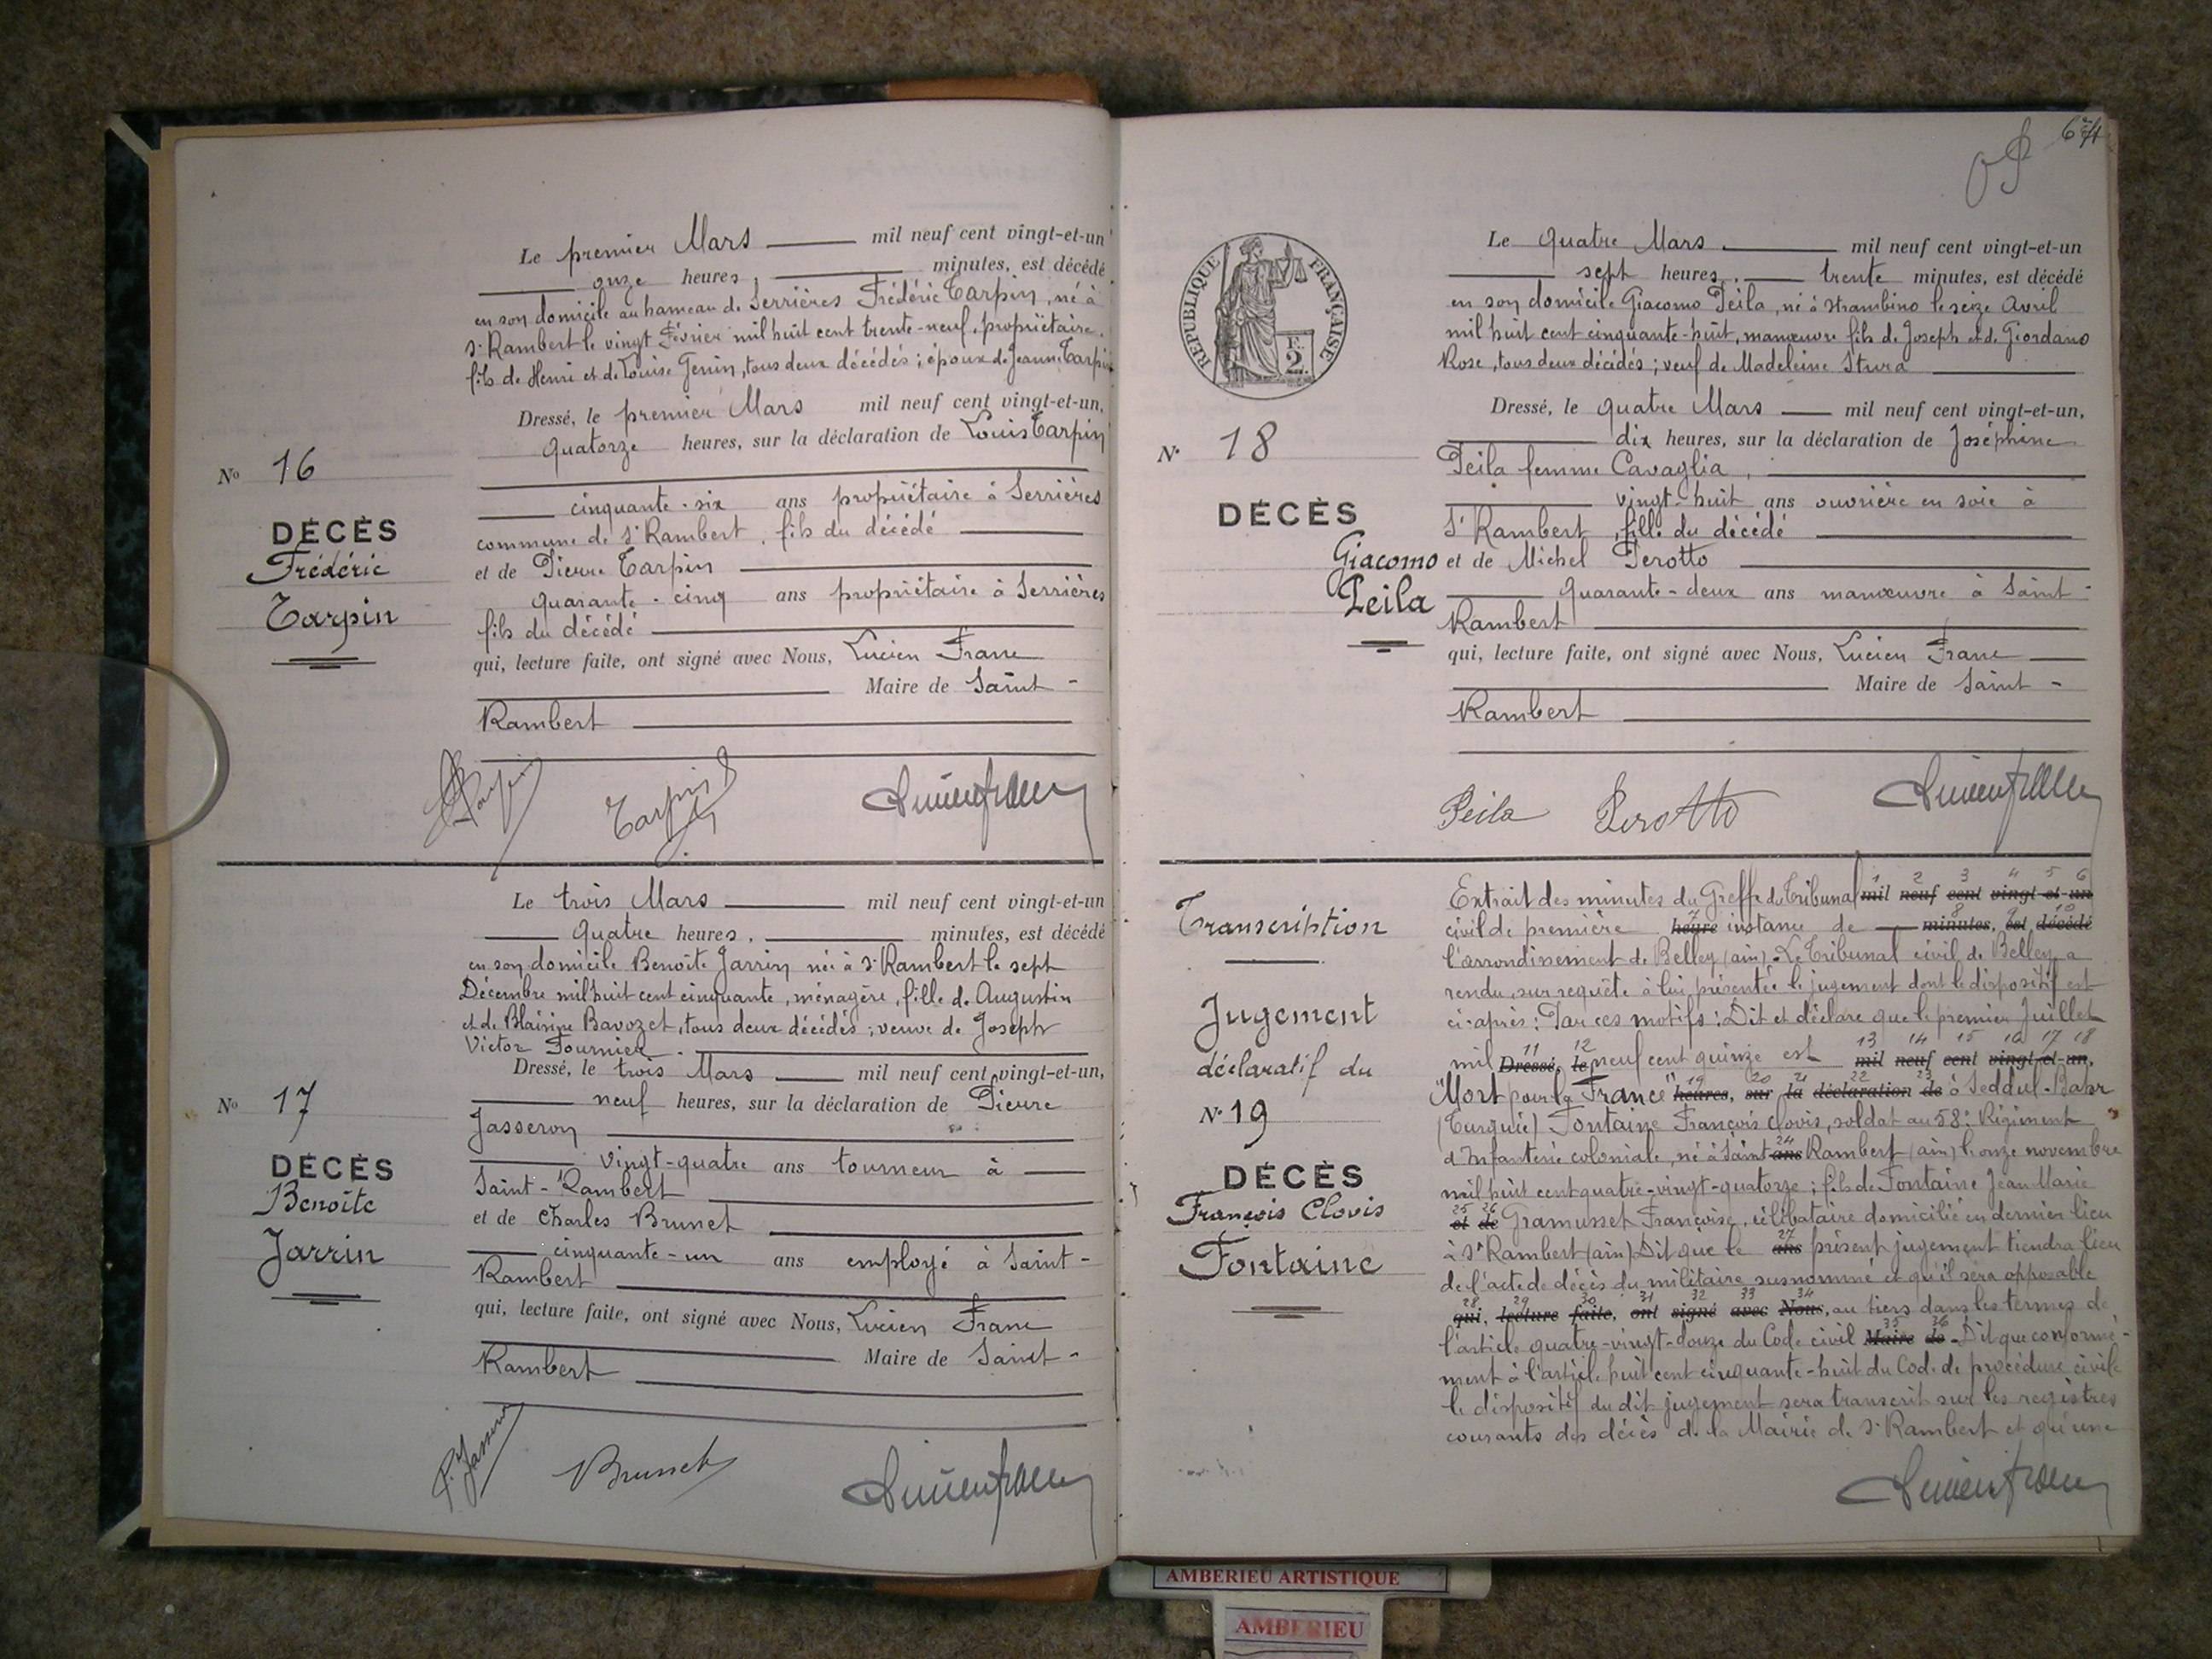 Le premier Mars mil neuf cent vingt-et-un
onze heures, minutes, est décédé
en son domicile au hameau de Serrières Frédéric Tarpin, né à
St Rambert le vingt Février mil huit cent trente-neuf, propriétaire,
fils de Henri et de Louise Genin, tous deux décédés; époux de Jeanne Tarpin
Dressé, le premier Mars mil neuf cent vingt-et-un,
quatorze heures, sur la déclaration de Louis Tarpin
No 16
cinquante-six ans propriétaire à Serrières
DÉCÈS
commune de St Rambert, fils du décédé
Frédéric
et de Pierre Tarpin
Tarpin
quarante-cinq ans propriétaire à Serrières
fils du décédé
qui, lecture faite, ont signé avec Nous, Lucien Franc
Maire de Saint-
Rambert
Tarpin
Lucien Franc
Le trois Mars mil neuf cent vingt-et-un
quatre heures, minutes, est décédé
en son domicile Benoîte Jarrin née à St Rambert le sept
Décembre mil huit cent cinquante, ménagère, fille de Augustin
et de Blaisine Bavozet, tous deux décédés; veuve de Joseph
Victor Fournier.
Dressé, le trois Mars mil neuf cent vingt-et-un,
No 17
neuf heures, sur la déclaration de Pierre
Jasseron
DÉCÈS
vingt-quatre ans tourneur à
Benoîte
Saint-Rambert
et de Charles Brunet
Jarrin
cinquante-un ans employé à Saint-
Rambert
qui, lecture faite, ont signé avec Nous, Lucien Franc
Maire de Saint-
Rambert
P. Jasseron
Brunet
Lucien Franc
RÉPUBLIQUE FRANÇAISE
2
Le quatre Mars mil neuf cent vingt-et-un
sept heures, trente minutes, est décédé
en son domicile Giacomo Peila, né à Strambino le seize Avril
mil huit cent cinquante-huit, manœuvre fils de Joseph et de Giordano
Rose, tous deux décédés; veuf de Madeleine Stura
Dressé, le quatre Mars mil neuf cent vingt-et-un,
No 18
dix heures, sur la déclaration de Joséphine
Peila femme Cavaglia,
DÉCÈS
vingt-huit ans ouvrière en soie à
St Rambert, fille du décédé
Giacomo
et de Michel Perotto
Peila
quarante-deux ans manœuvre à Saint-
Rambert
qui, lecture faite, ont signé avec Nous, Lucien Franc
Maire de Saint-
Rambert
Peila
Perotto
Lucien Franc
Transcription
Jugement
déclaratif du
No 19
DÉCÈS
François Clovis
Fontaine
Extrait des minutes du Greffe du Tribunal 1 mil 2 neuf 3 cent 4 vingt 5 et 6 un
civil de première 7 heure instance de 8 minutes, 9 est 10 décédé
l'arrondissement de Belley (ain). Le Tribunal civil de Belley a
rendu, sur requête à lui présentée le jugement dont le dispositif est
ci-après: Par ces motifs: Dit et déclare que le premier Juillet
mil 11 Dressé, 12 le neuf cent quinze est 13 mil 14 neuf 15 cent 16 vingt 17 et 18 un,
"Mort pour la France" 19 heures, 20 sur 21 la 22 déclaration 23 de à Seddul-Bahr
(Turquie) Fontaine François Clovis, soldat au 58e Régiment
d'Infanterie coloniale, né à Saint 24 ans Rambert (ain) le onze novembre
mil huit cent quatre-vingt-quatorze; fils de Fontaine Jean Marie
25 et 26 de Gramusset Françoise, célibataire domicilié en dernier lieu
à St Rambert (ain) Dit que le 27 ans présent jugement tiendra lieu
de l'acte de décès du militaire susnommé et qu'il sera opposable
28 qui, 29 lecture 30 faite, 31 ont 32 signé 33 avec 34 Nous, au tiers dans les termes de
l'article quatre-vingt-douze du Code civil 35 Maire 36 de - Dit que conformé-
ment à l'article huit cent cinquante-huit du Code de procédure civile
le dispositif du dit jugement sera transcrit sur les registres
courants des décès de la Mairie de St Rambert et qu'une
Lucien Franc
AMBERIEU ARTISTIQUE
AMBERIEU